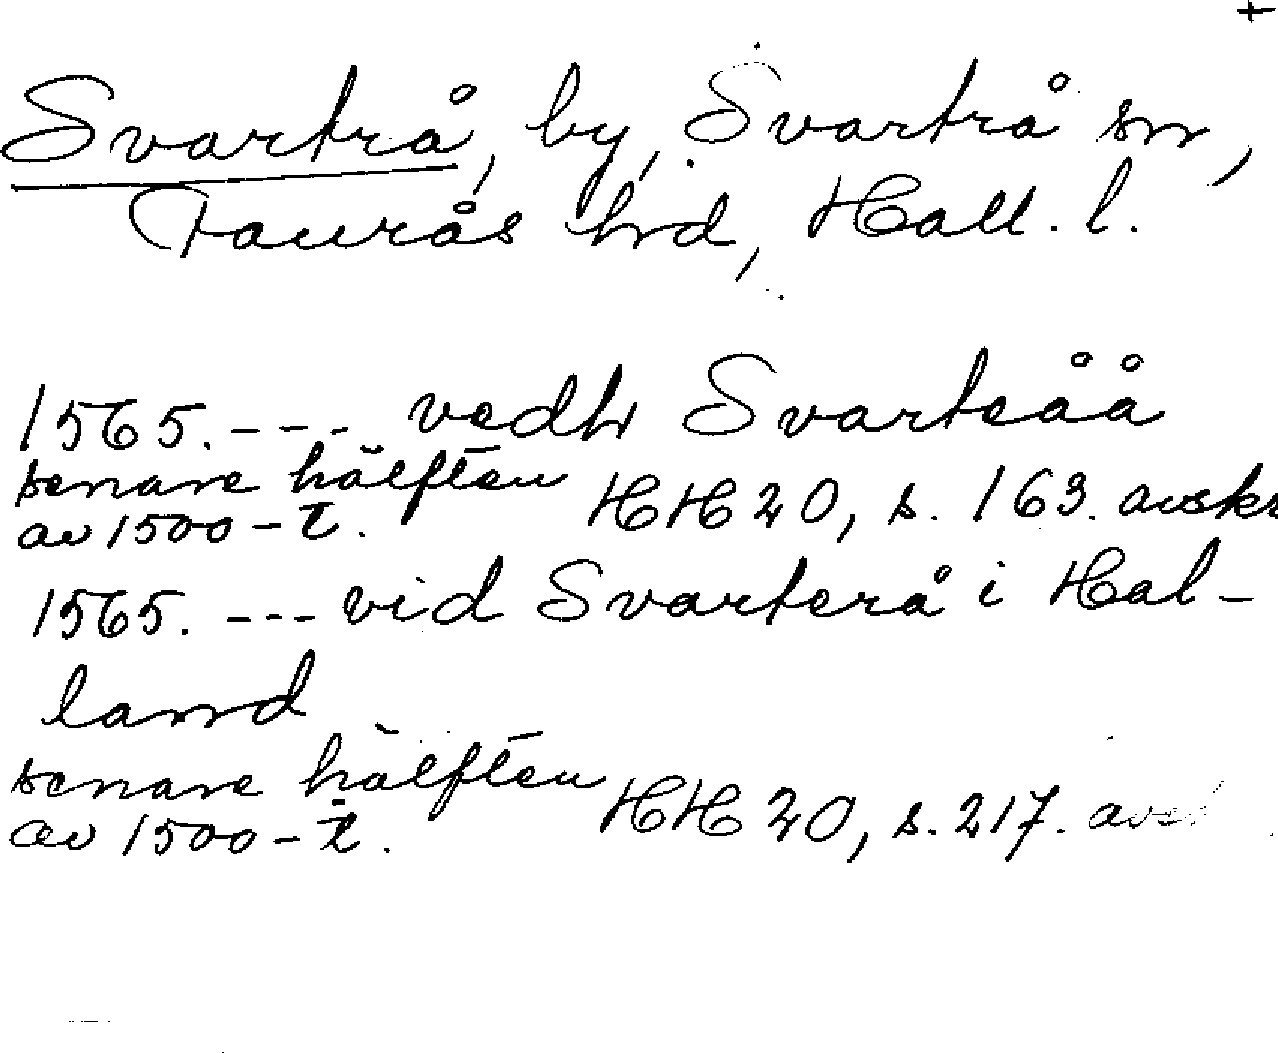 +
Svartrå, by, Svartrå sn,
Faurås hd, Hall. l.
1565. --- vedh Svarteåå
senare hälften
av 1500-t. HH 20, s. 163. avskr
1565. --- vid Svarterå i Hal-
land
senare hälften
av 1500-t. HH 20, s. 217.